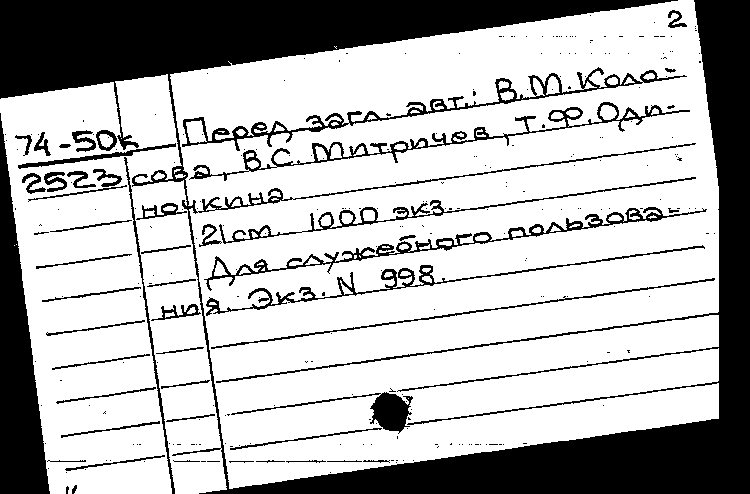 2
74-50к Перед загл. авт.: В.М.Коло-
2523 сова, В.С. Митричев, Т.Ф.Оди-
ночкина.
21 cm. 1000 экз.
Для служебного пользова-
ния. Экз. N 998.